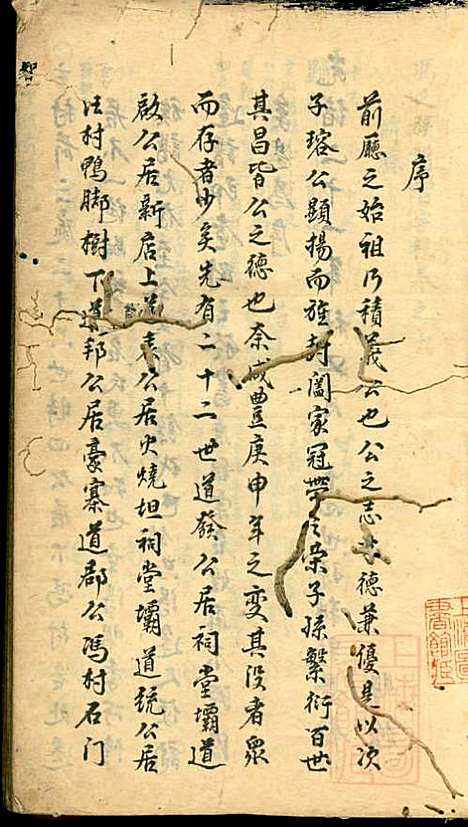 序
前廳之始祖乃積義公也公之志德兼優是以次
子瑢公顯揚而旌封闔家冠帶之榮子孫繁衍百世
其昌皆公之德也奈咸豊庚申年之變其没者眾
而存者少矣先有二十二世道發公居祠堂壩道
啟公居新店上公居火燒坦祠堂壩道統公居
汪村鴨脚樹下道邦公居豪寨道郡公馮村石門